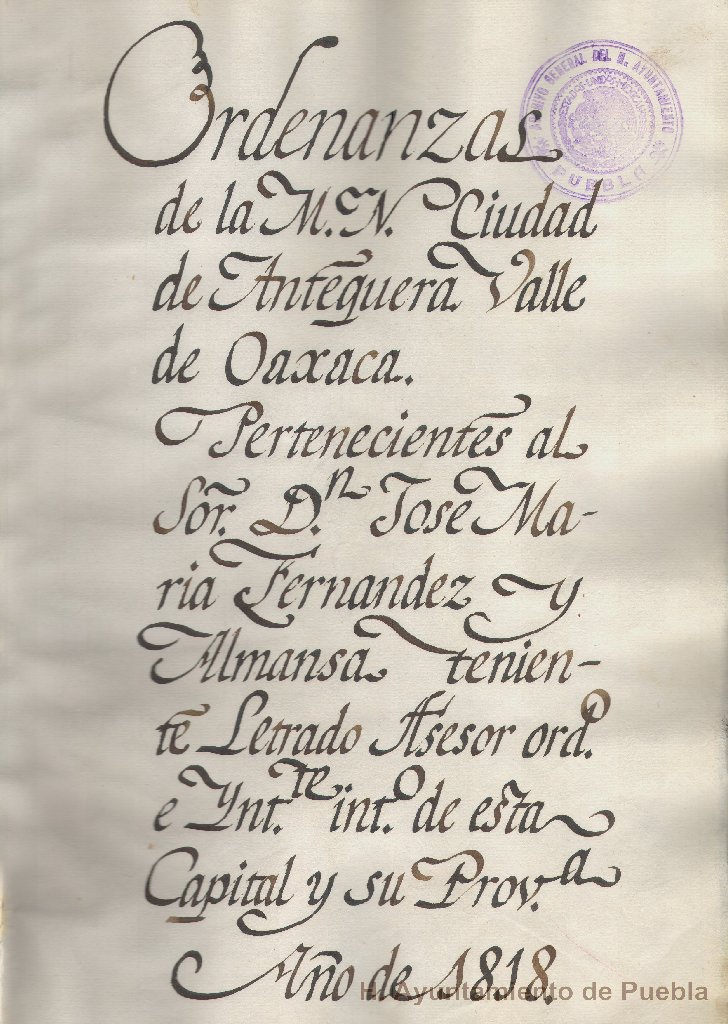 Ordenanzas
de la M.N. Ciudad
de Antequera Valle
de Oaxaca.
Pertenecientes al
Sor. D.n Jose Ma-
ria Fernandez y
Almansa tenien-
te Letrado Assesor ord.o
e Ynt.te int.o de esta
Capital y su Prov.a
Año de 1818.
ARCHIVO GENERAL DEL H. AYUNTAMIENTO
PUEBLA
H. Ayuntamiento de Puebla